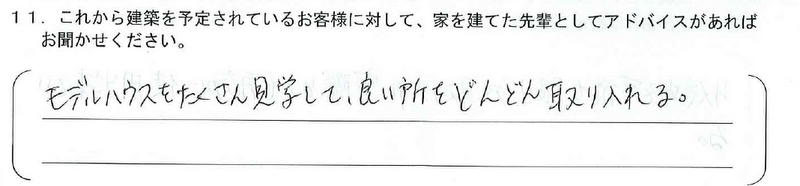 １１．これから建築を予定されているお客様に対して、家を建てた先輩としてアドバイスがあれば
お聞かせください。
モデルハウスをたくさん見学して、良い所をどんどん取り入れる。